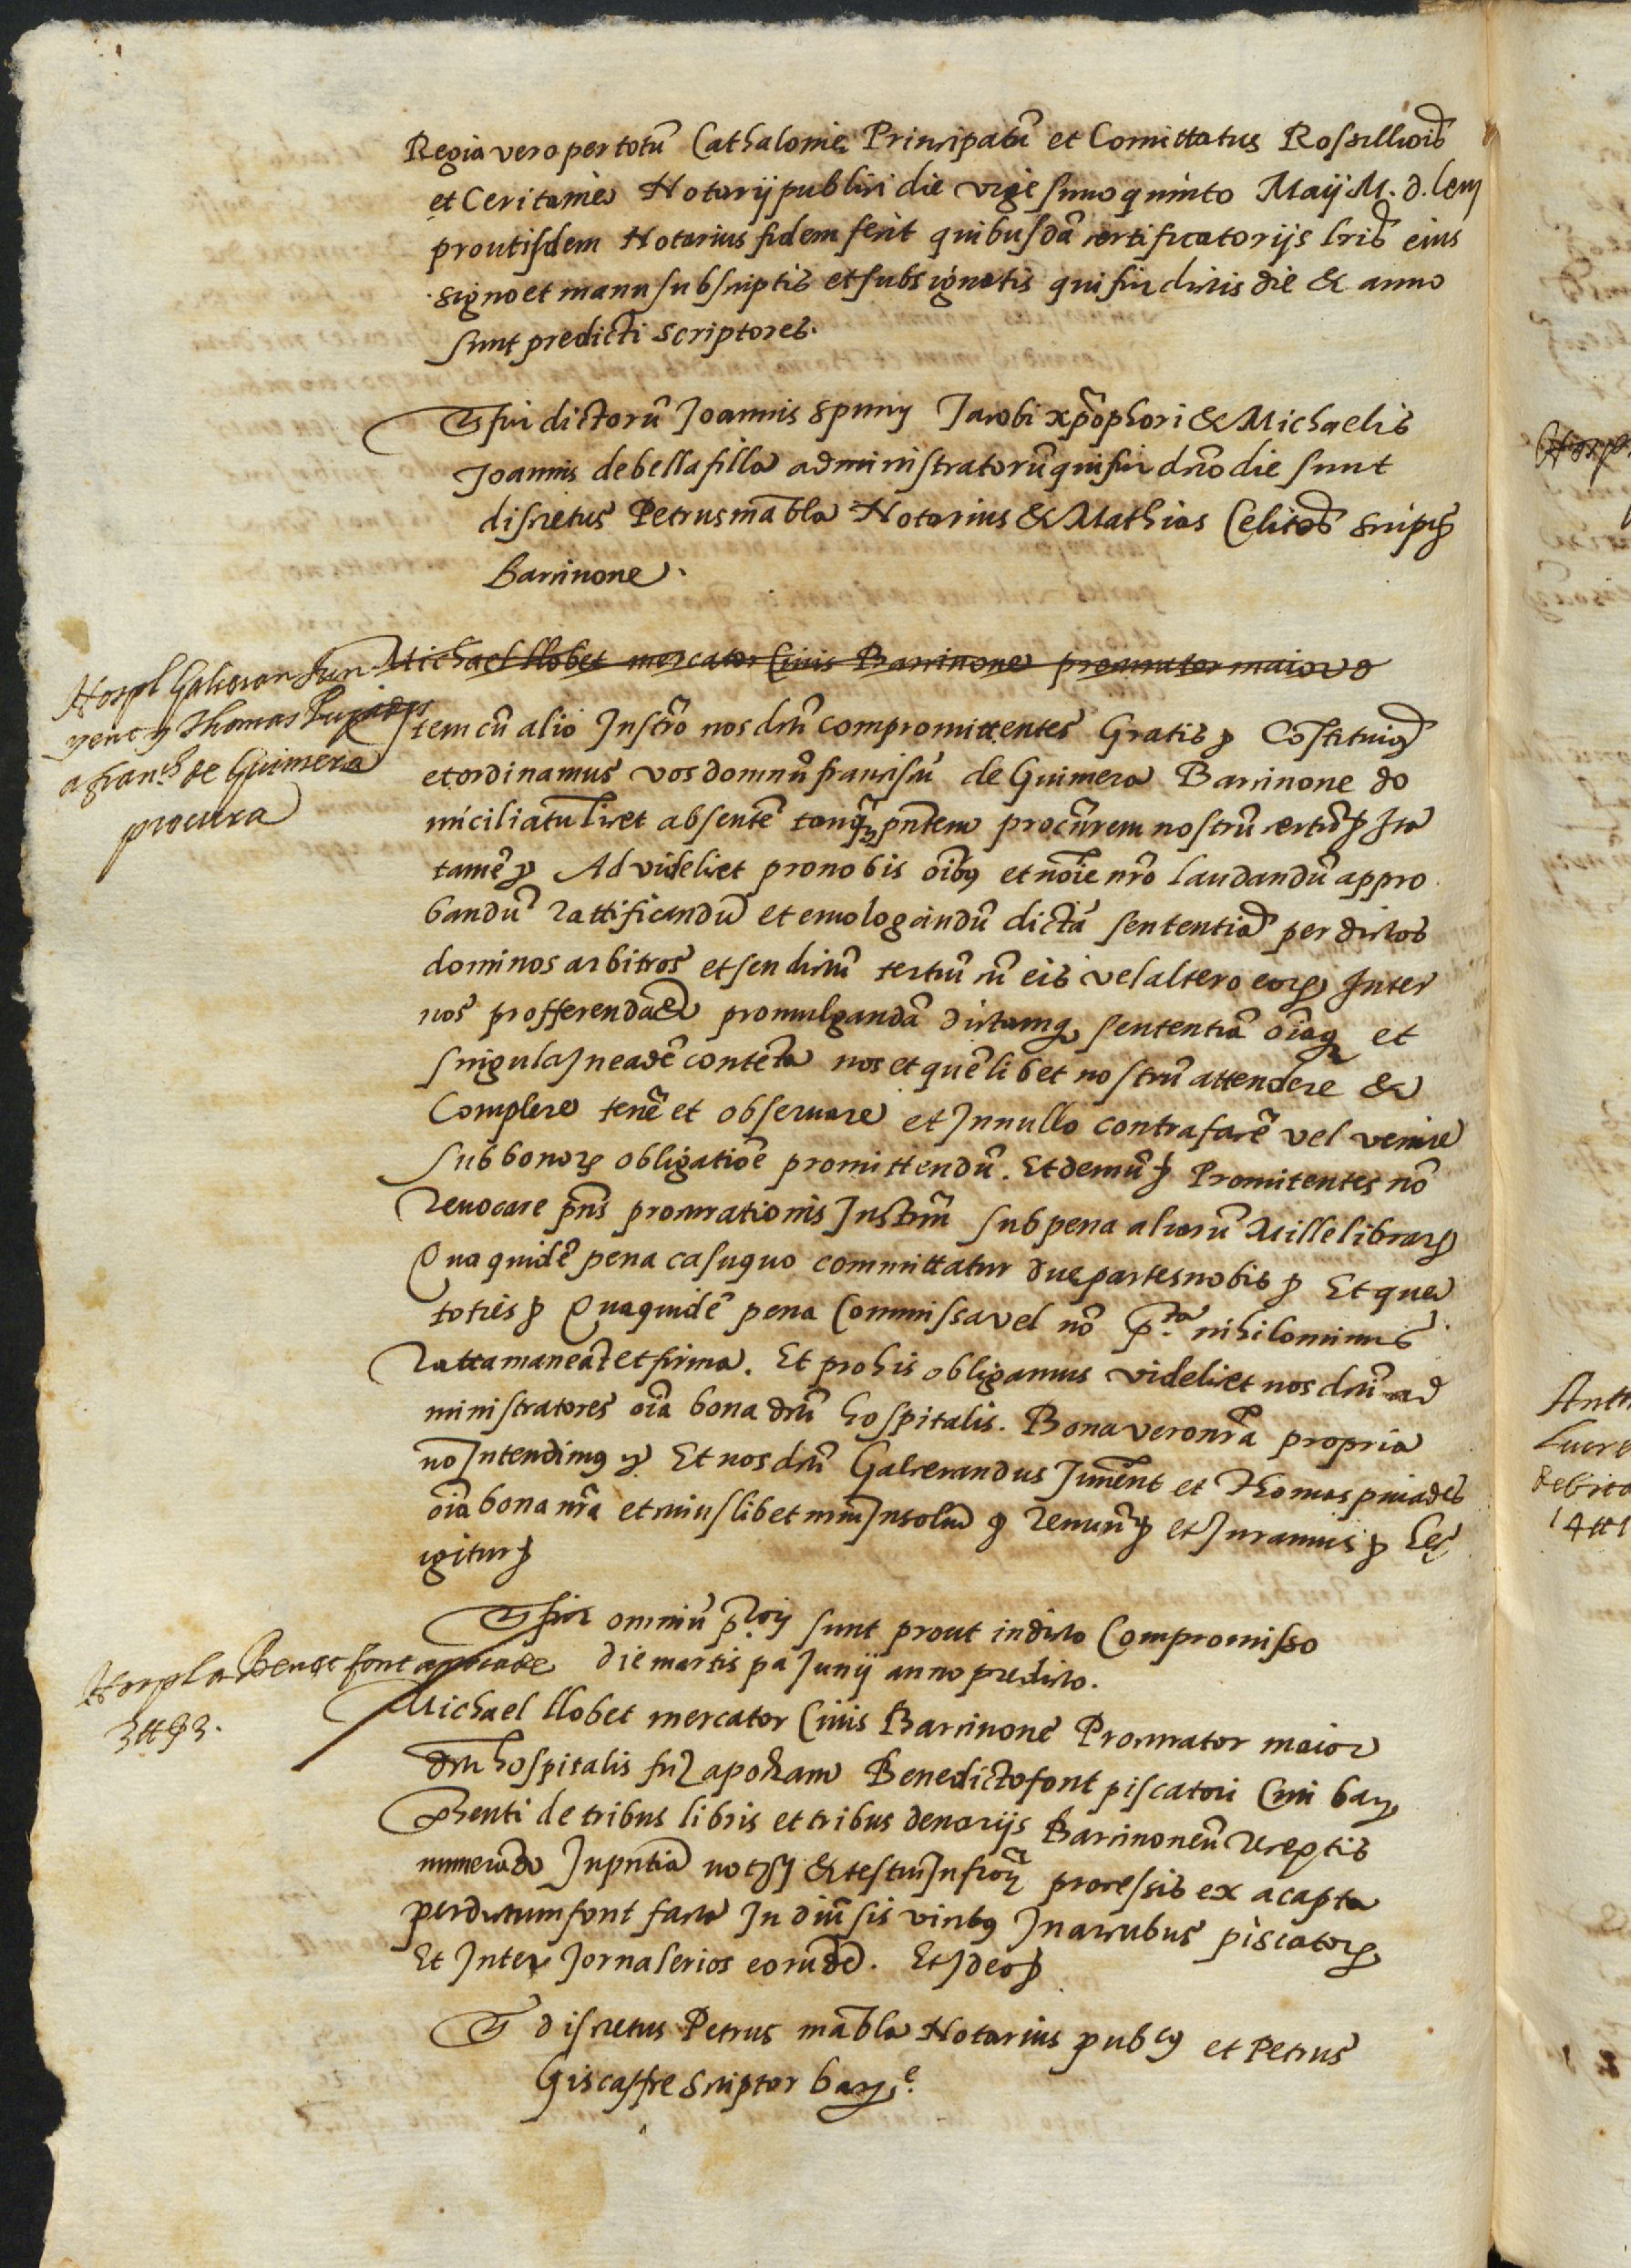 Regia vero per totũ Cathalonie Principatũ et Comittatus Rossilionis
et Ceritanie Notarij publici die vigesimo quinto Maij M. d. lxvj
prout isdem Notarius fidem fecit quibusdã certificatorijs lris eius
signo et manu subscriptis et subsignatis qui fir dictis die & anno
sunt predicti scriptores.
Ts fir dictorũ Joannis spuny Jacobi xp̃ophori & Michaelis
Joannis de bellafilla administratorũ qui fir dicto die sunt
discretus Petrus mãbla Notarius & Mathias Celitos scriptores
Barcinone.
Hospl Galceran Jun
yent y Thomas Pujades
a franch de Guimera
procura
Michael llobet mercator Civis Barcinone procurator maior d
Item cũ alio Instro nos dicti compromittentes Gratis &c Cõstituimus
et ordinamus vos domnũ franciscũ de Guimera Barcinone do
miciliatum licet absentẽ tanq̃ pñtem procurem nostrũ certũ &c Ita
tamẽ &c Ad videlicet pro nobis oĩbus et noĩe nr̃o laudandũ appro
bandũ rattificandũ et emologandũ dictã sententiã per dictos
dominos arbitros et seu dictũ tertiũ cũ eis vel altero eorum Inter
nos profferendã & promulgandã dictamque sententiã oĩaque et
singula In eadẽ contenta nos et quẽlibet nostrũ attendere &
Complere tenẽ et observare et In nullo contrafacẽ vel venire
sub bonorum obligatiõe promittendũ. Et demũ &c Promitentes nõ
revocare pñs procurationis Instrm̃ sub pena aliarũ Mille librarum
Qua quidẽ pena casu quo committatur due partes nobis &c Et que
toties &c Qua quidẽ pena Commissa vel nõ p.ta nihilominus
ratta maneãt et firma. Et pro his obligamus videlicet nos dicti ad
ministratores oĩa bona dicti hospitalis. Bona vero nr̃a propria
nõ Intendimus &c Et nos dicti Galcerandus Junyent et Thomas pujades
oĩa bona nr̃a et cuiuslibet nrũm Insolũ &c renun̄ &c et Juramus &c hec
igitur &c
Ts fir omniũ p.torũ sunt prout in dicto Compromisso
Hospl a Benet font apocade
3 ₶ § 3.
die martis pa Junij anno predicto.
Michael llobet mercator Civis Barcinone Procurator maior
dicti hospitalis fir apocham Benedicto font piscatori Civi bare
pñti de tribus libris et tribus denarijs Barcinoneñ receptis
numerãdo In pñtia notrij & testium Infrorum processis ex acapta
per dictum font facta In diversis vicibus In arcubus piscatorum
Et Inter Jornalerios eorũdẽ. Et Ideo &c
Ts discretus Petrus mãbla Notarius pubcus et Petrus
Giscaffre Scriptor bare.